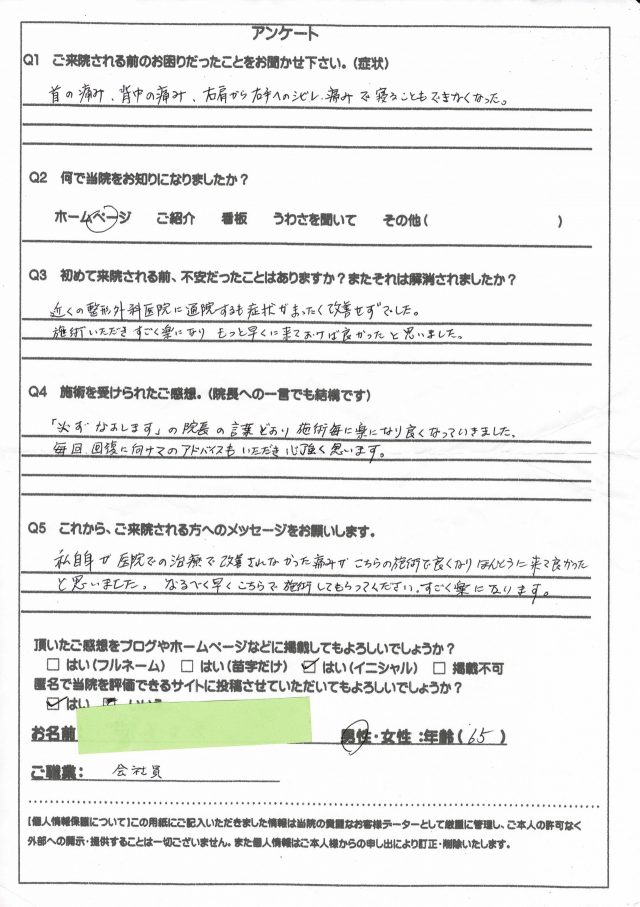 アンケート
Q1 ご来院される前のお困りだったことをお聞かせ下さい。(症状)
首の痛み、背中の痛み、右肩から右手へのシビレ、痛みで寝ることもできなくなった。
Q2 何で当院をお知りになりましたか?
ホームページ ご紹介 看板 うわさを聞いて その他( )
Q3 初めて来院される前、不安だったことはありますか?またそれは解消されましたか?
近くの整形外科医院に通院するも症状がまったく改善せずでした。
施術いただきすごく楽になり もっと早くに来ておけば良かったと思いました。
Q4 施術を受けられたご感想。(院長への一言でも結構です)
「必ずなおします」の院長の言葉どおり施術毎に楽になり良くなっていきました、
毎回、回復に向けてのアドバイスもいただき心強く思います。
Q5 これから、ご来院される方へのメッセージをお願いします。
私自身が医院での治療で改善されなかった痛みがこちらの施術で良くなりほんとうに来て良かった
と思いました。なるべく早くこちらで施術してもらってください。すごく楽になります。
頂いたご感想をブログやホームページなどに掲載してもよろしいでしょうか?
□ はい(フルネーム) □ はい(苗字だけ) ☑ はい(イニシャル) □ 掲載不可
匿名で当院を評価できるサイトに投稿させていただいてもよろしいでしょうか?
☑ はい
お名前 男性・女性:年齢(65)
ご職業: 会社員
【個人情報保護について】この用紙にご記入いただきました情報は当院の貴重なお客様データーとして厳重に管理し、ご本人の許可なく
外部への開示・提供することは一切ございません。また個人情報はご本人様からの申し出により訂正・削除いたします。